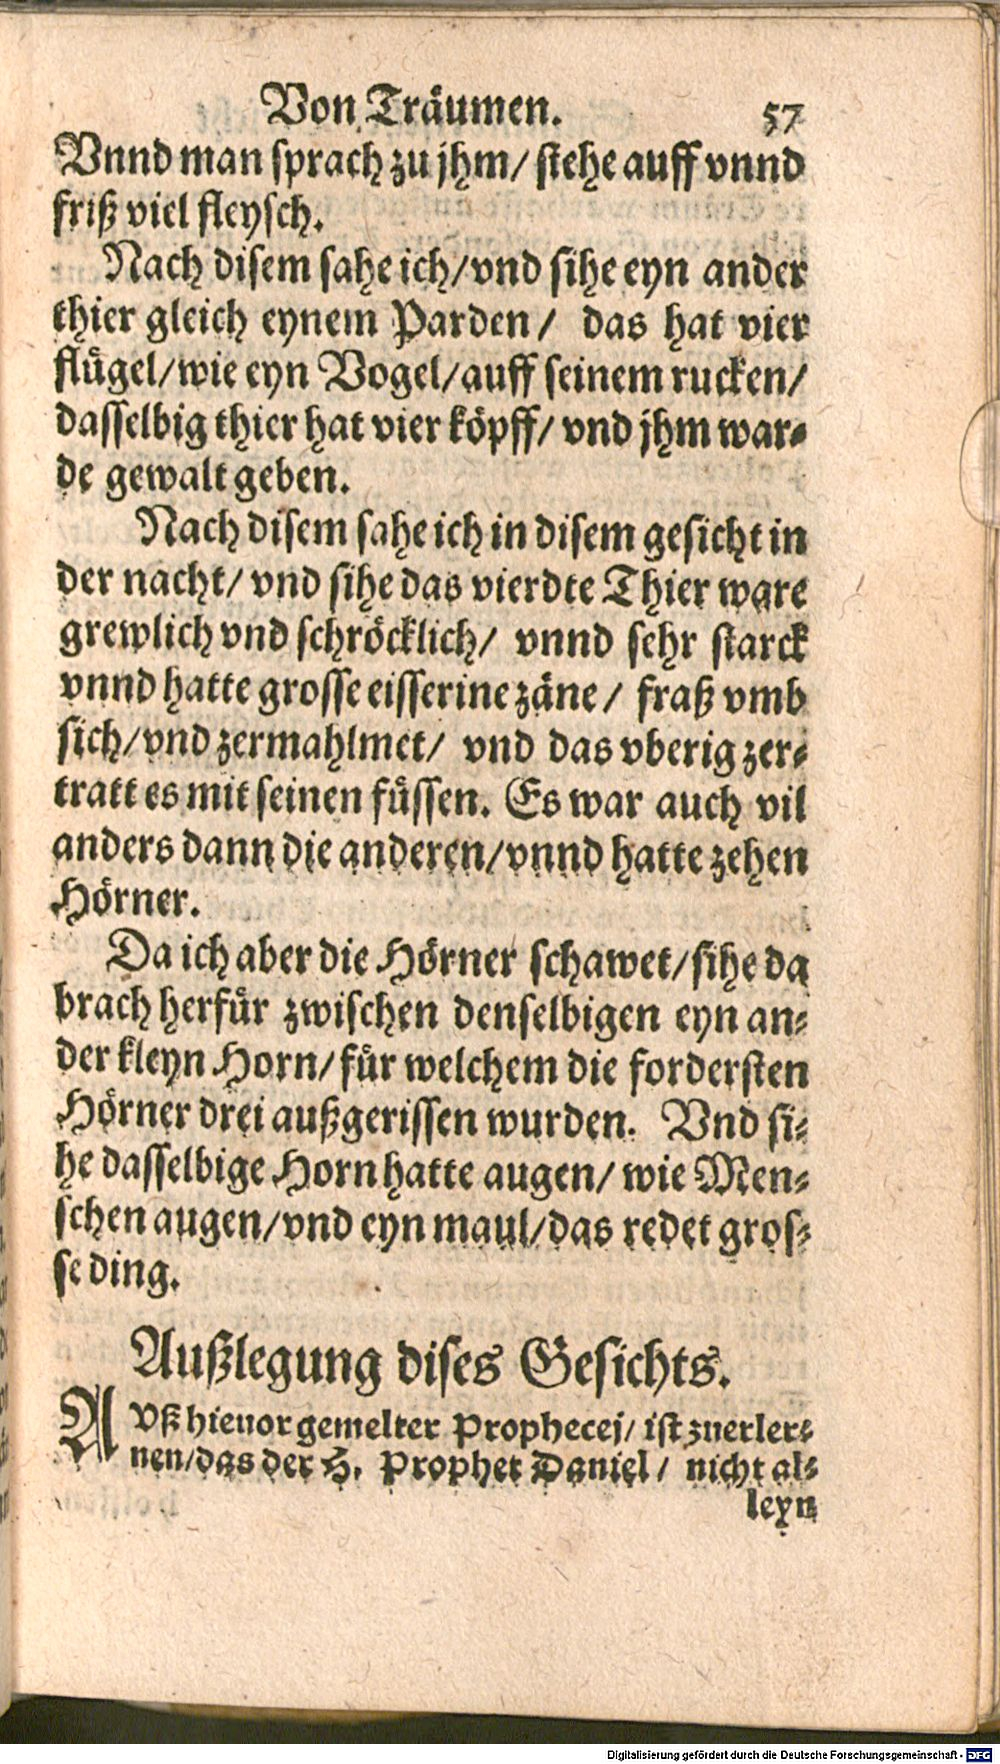 Von Träumen. 57
Vnnd man sprach zu jhm/ stehe auff vnnd
friß viel fleysch.
Nach disem sahe ich/vnd sihe eyn ander
thier gleich eynem Parden/ das hat vier
flügel/wie eyn Vogel/auff seinem rucken/
dasselbig thier hat vier köpff/ vnd jhm war⸗
de gewalt geben.
Nach disem sahe ich in disem gesicht in
der nacht/ vnd sihe das vierdte Thier ware
grewlich vnd schröcklich/ vnnd sehr starck
vnnd hatte grosse eisserine zäne/ fraß vmb
sich/vnd zermahlmet/ vnd das vberig zer⸗
tratt es mit seinen füssen. Es war auch vil
anders dann die anderen/vnnd hatte zehen
Hörner.
Da ich aber die Hörner schawet/sihe da
brach herfür zwischen denselbigen eyn an⸗
der kleyn Horn/für welchem die fordersten
Hörner drei außgerissen wurden. Vnd si⸗
he dasselbige Horn hatte augen/ wie Men⸗
schen augen/vnd eyn maul/das redet gros⸗
se ding.
Außlegung dises Gesichts.
AVß hieuor gemelter Prophecej/ ist zuerler⸗
nen/das der H. Prophet Daniel/ nicht al⸗
leyn
Digitalisierung gefördert durch die Deutsche Forschungsgemeinschaft - DFG